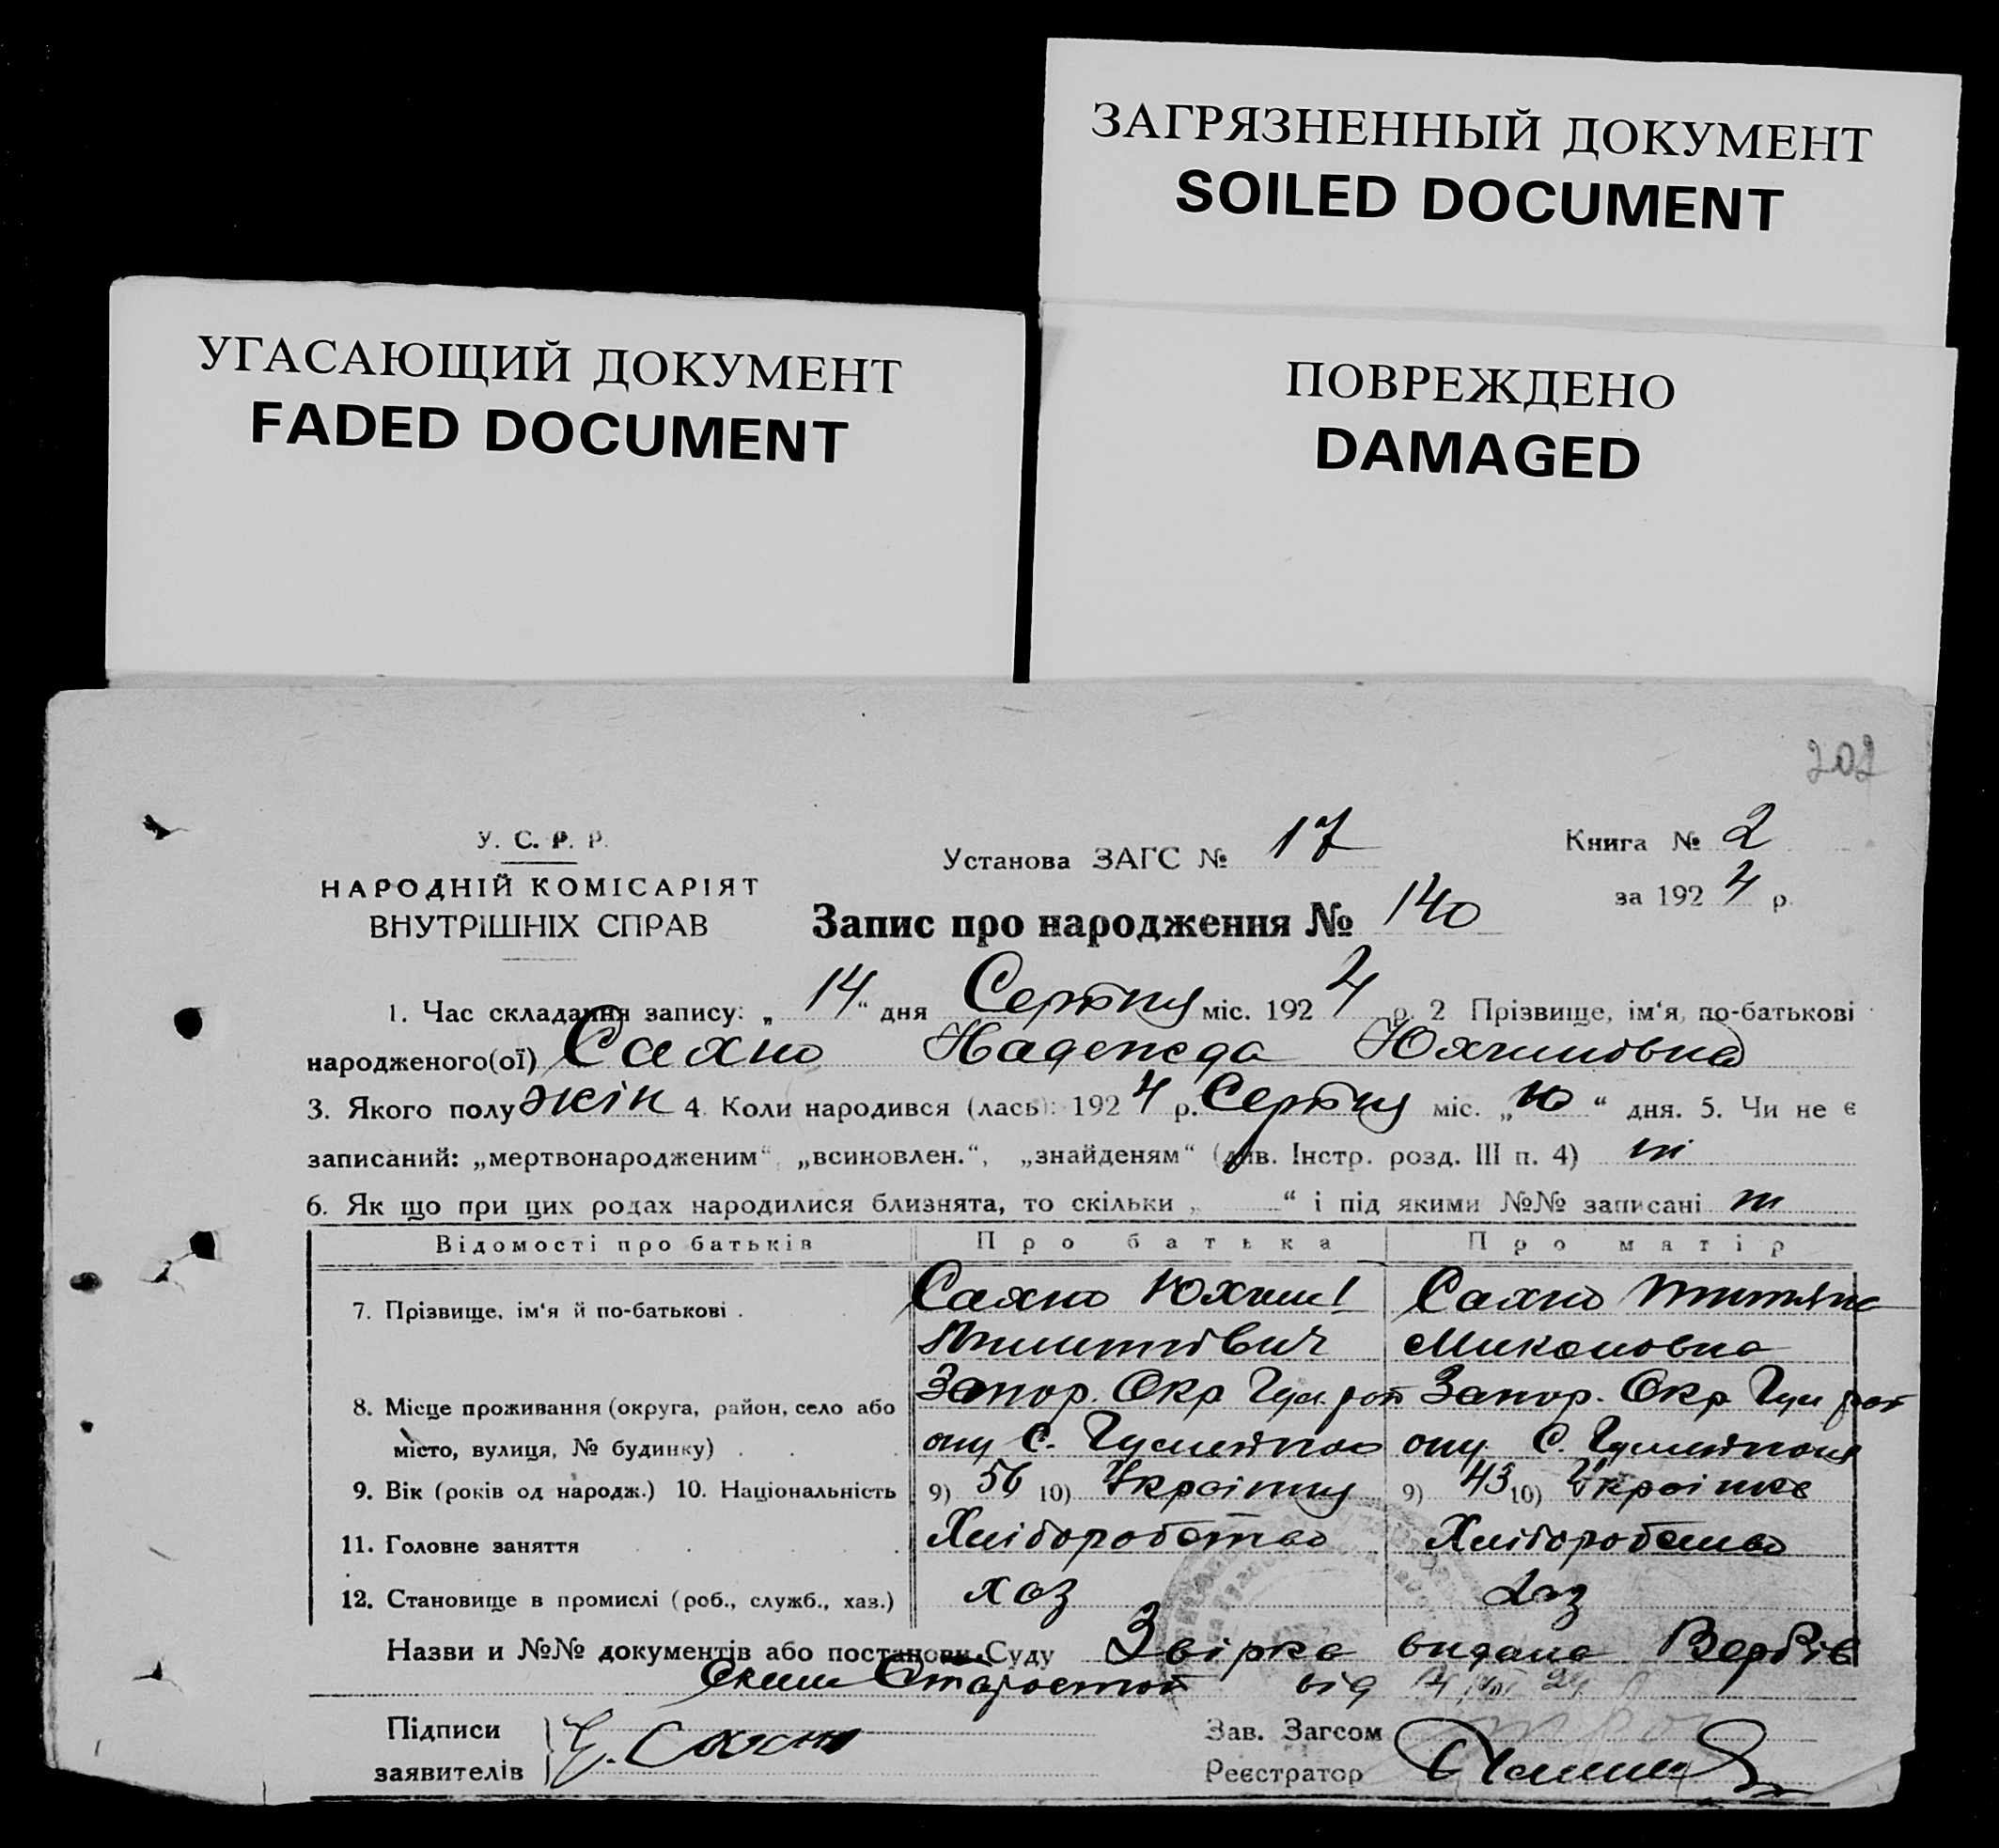 ЗАГРЯЗНЕННЫЙ ДОКУМЕНТ
SOILED DOCUMENT
УГАСАЮЩИЙ ДОКУМЕНТ
FADED DOCUMENT
ПОВРЕЖДЕНО
DAMAGED
202
У. С. Р. Р.
НАРОДНІЙ КОМІСАРІЯТ
ВНУТРІШНІХ СПРАВ
Установа ЗАГС № 17
Книга № 2
за 1924 р.
Запис про народження № 140
1. Час складання запису: „14“ дня Серпня міс. 1924 р. 2 Прізвище, ім‘я, по-батькові
народженого(ої) Сахно Надежда Юхимовна
3. Якого полу жін 4. Коли народився (лась): 1924 р. Серпня міс. „10“ дня. 5. Чи не є
записаний: „мертвонародженим“, „всиновлен.“, „знайденям“ (див. Інстр. розд. III п. 4) ні
6. Як що при цих родах народилися близнята, то скільки „ “ і під якими №№ записані ні
Відомості про батьків Про батька Про матір
7. Прізвище, ім‘я й по-батькові . Сахно Юхим Сахно
8. Місце проживання (округа, район, село або Запор. Окр Запор. Окр
місто, вулиця, № будинку) . . ону С. ону С.
9. Вік (років од народж.) 10. Національність 9) 56 10) 9) 43 10) Українка
11. Головне заняття Хліборобство Хліборобство
12. Становище в промислі (роб., служб., хаз.) хаз хаз
Назви и №№ документів або постанови Суду видана
від
Підписи
заявителів Сахно
Зав. Загсом
Реєстратор